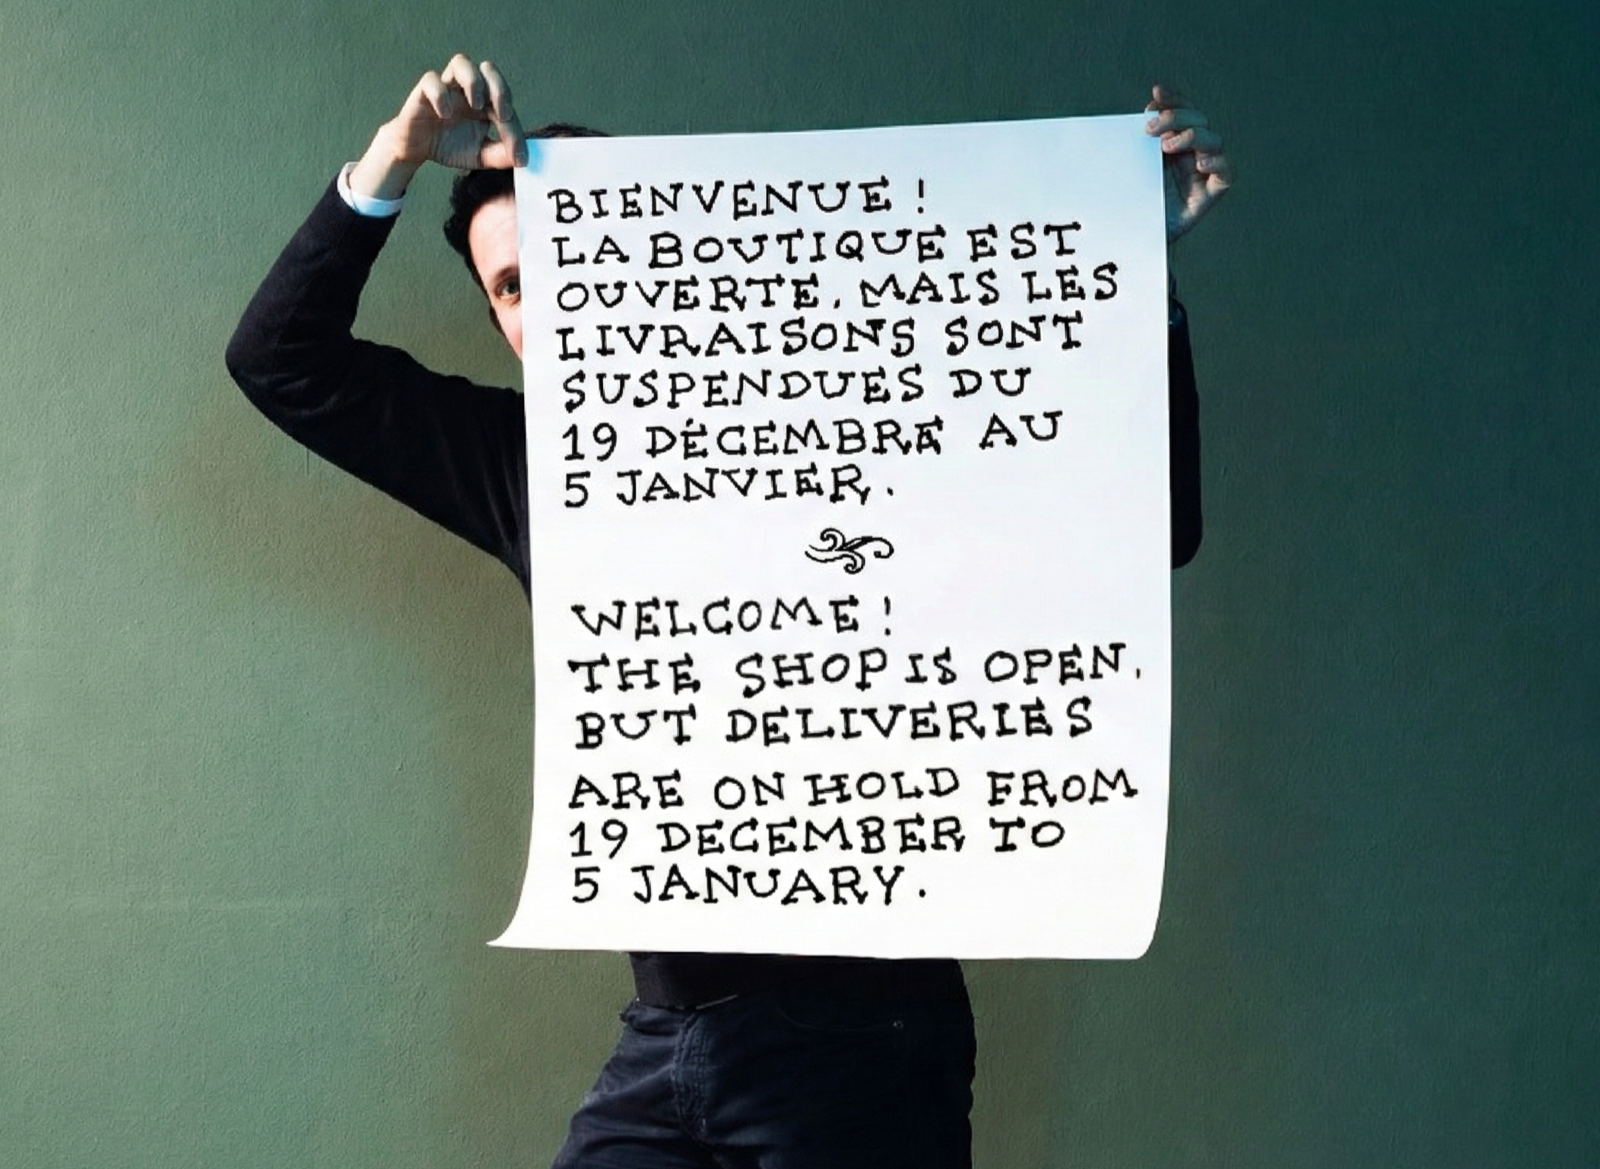 BIENVENUE !
LA BOUTIQUE EST
OUVERTE, MAIS LES
LIVRAISONS SONT
SUSPENDUES DU
19 DÉCEMBRE AU
5 JANVIER.
WELCOME !
THE SHOP IS OPEN,
BUT DELIVERIES
ARE ON HOLD FROM
19 DECEMBER TO
5 JANUARY.